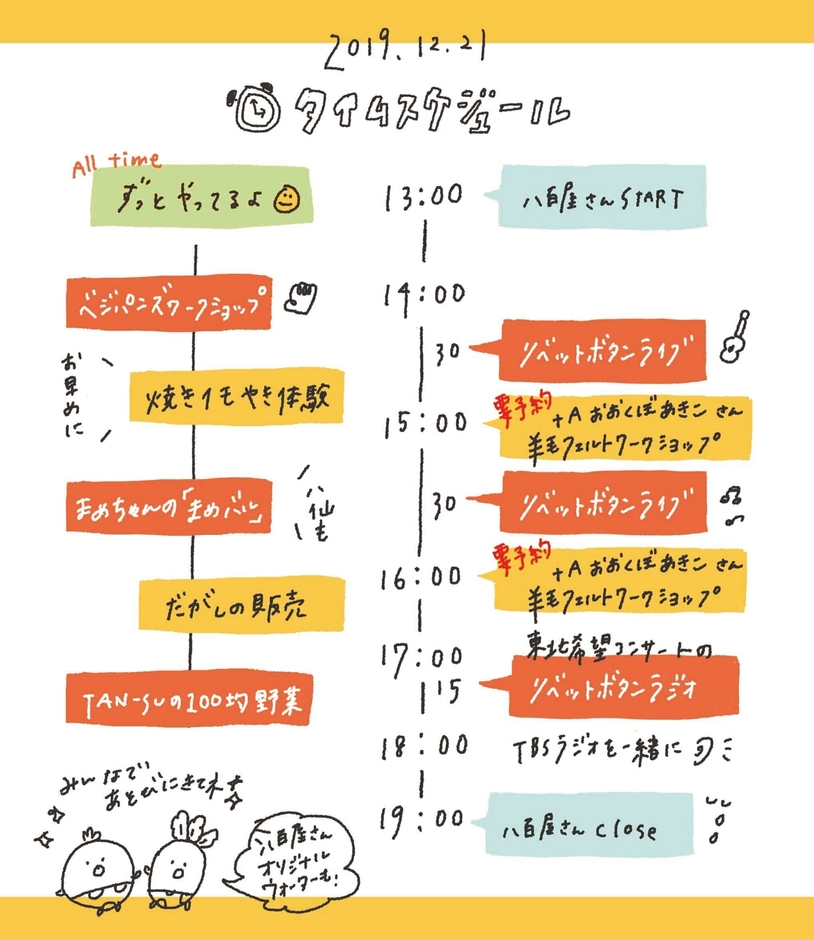 2019.12.21
タイムスケジュール
All time
ずっとやってるよ
ベジパンズワークショップ
お早めに
焼きイモやき体験
まめちゃんの「まめバル」
八仙も
だがしの販売
TAN-SUの100均野菜
みんなで
あそびにきてネ
八百屋さん
オリジナル
ウォーターも!
13:00
八百屋さんSTART
14:00
30
リベットボタンライブ
15:00
要予約
+A おおくぼあきこ さん
羊毛フェルトワークショップ
30
リベットボタンライブ
16:00
要予約
+A おおくぼあきこ さん
羊毛フェルトワークショップ
17:00
東北希望コンサートの
15
リベットボタンラジオ
18:00
TBSラジオを一緒に
19:00
八百屋さん close